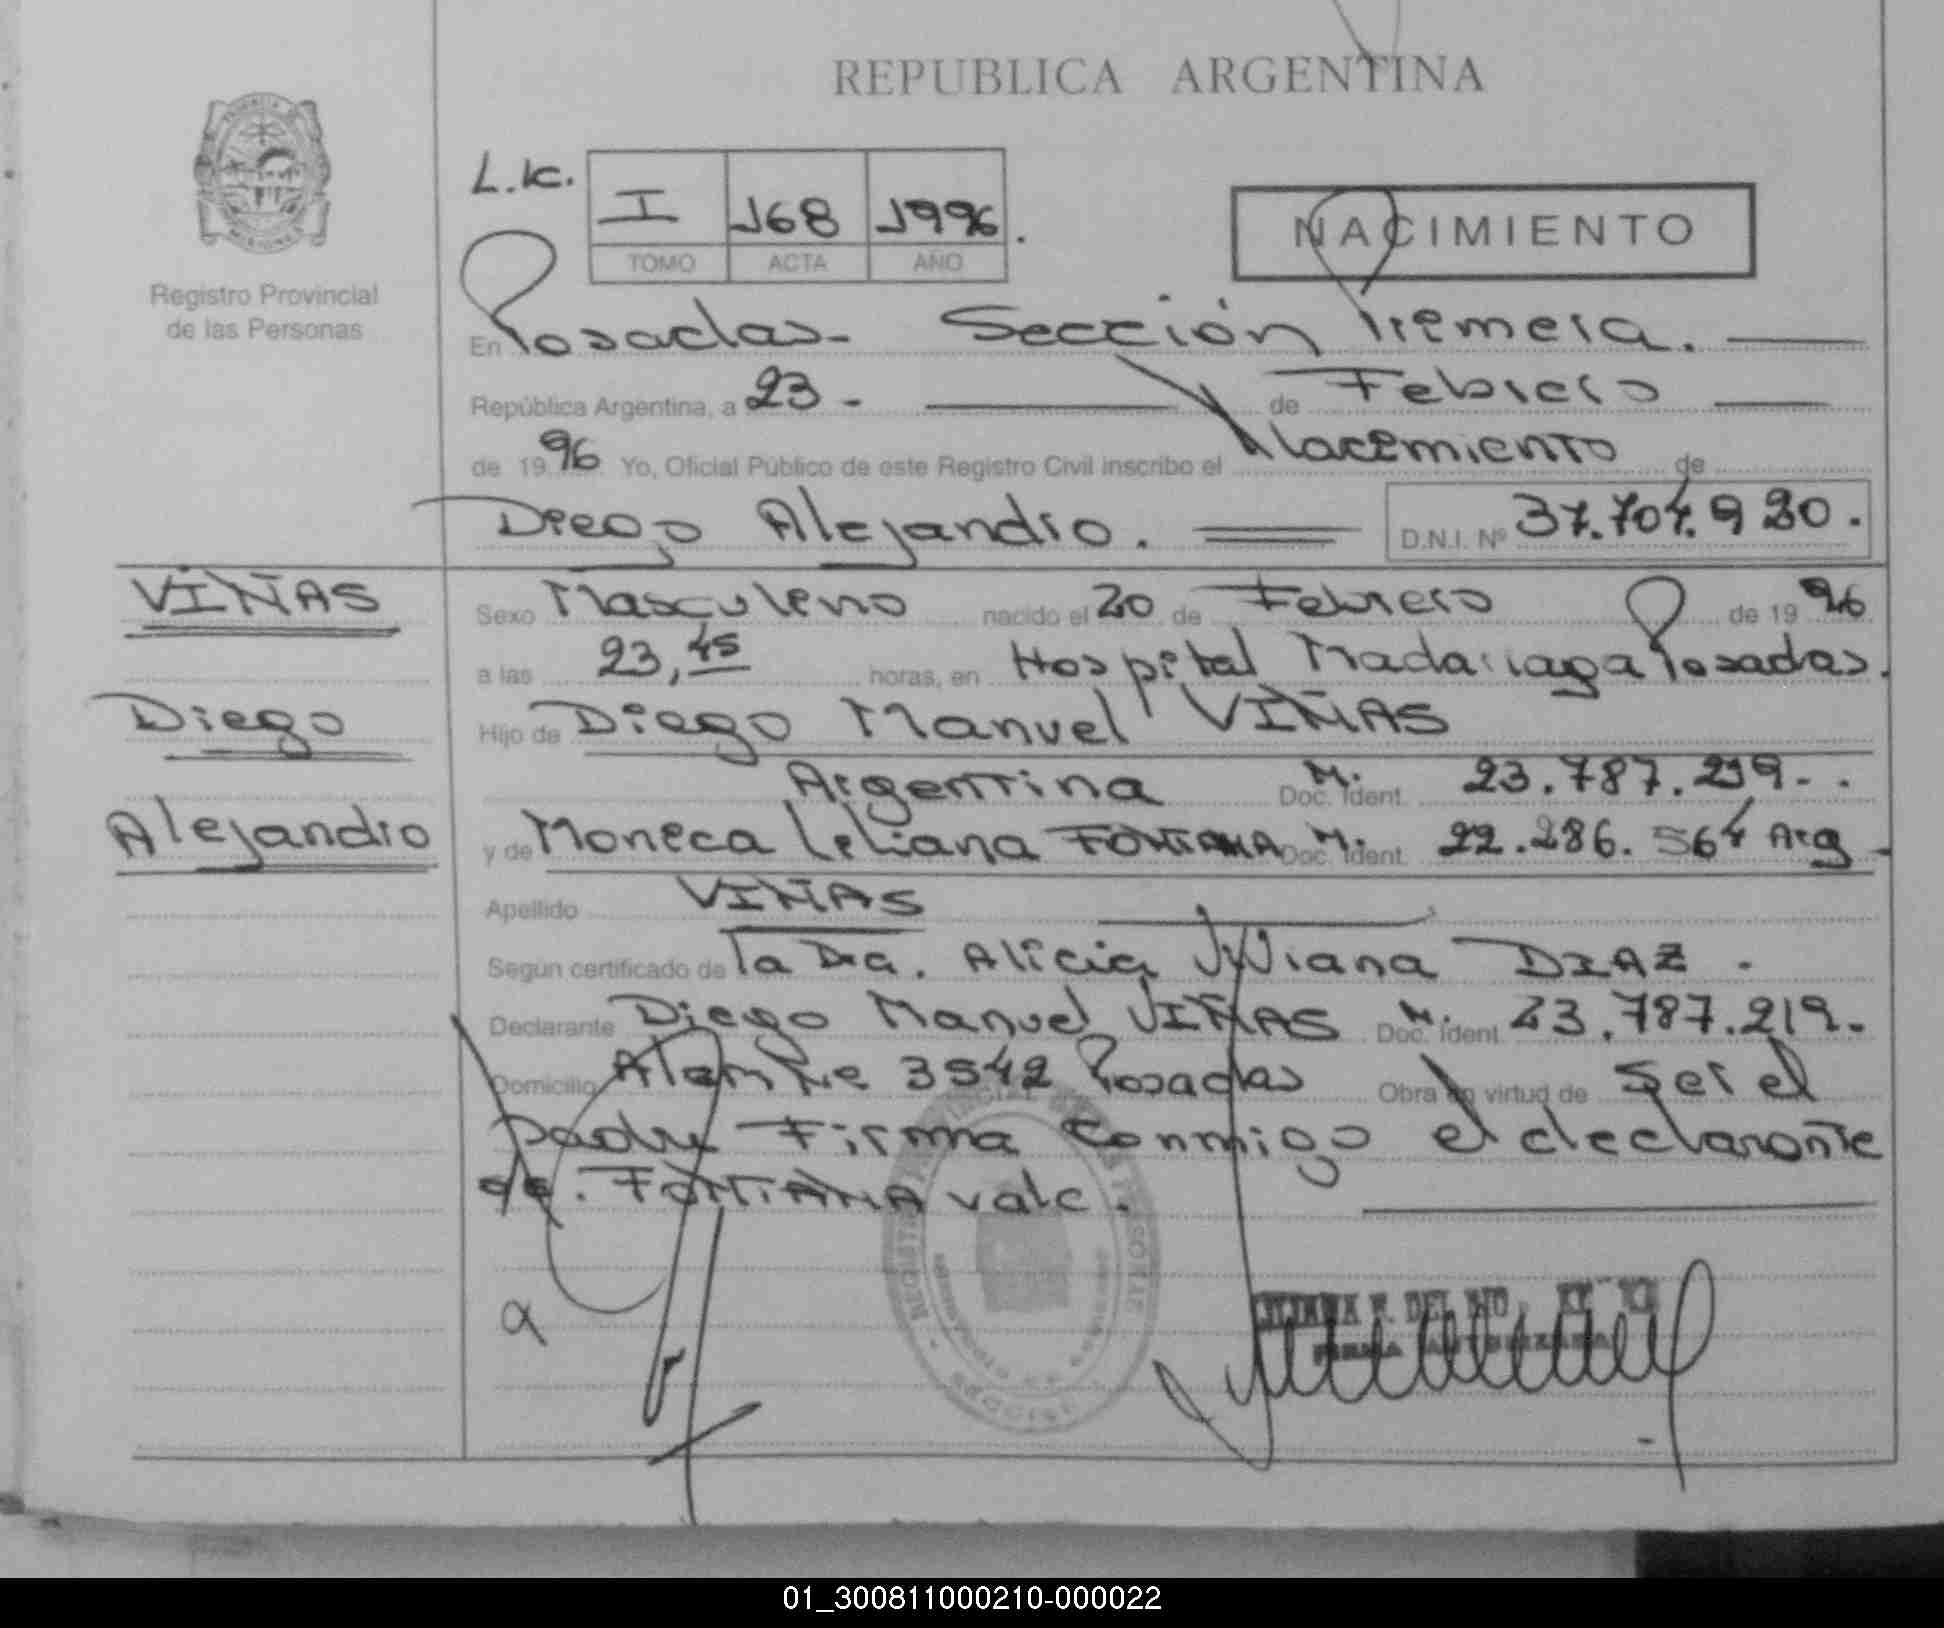 REPUBLICA ARGENTINA
L.K.
I 168 1996.
TOMO ACTA AÑO
NACIMIENTO
Registro Provincial
de las Personas
En Posadas - Sección Primera.
República Argentina, a 23 - de Febrero
de 1996 Yo, Oficial Público de este Registro Civil inscribo el Nacimiento de
Diego Alejandro. D.N.I. Nº 37.704.920.
VIÑAS
Diego
Alejandro
Sexo Masculino nacido el 20 de Febrero de 1996
a las 23,45 horas, en Hospital Madariaga Posadas.
Hijo de Diego Manuel VIÑAS
Argentina Doc. Ident. M. 23.787.219-.
y de Monica Liliana FONTANA Doc. Ident. M. 22.286.564 Arg
Apellido VIÑAS
Según certificado de la Dra. Alicia Viviana DIAZ.
Declarante Diego Manuel VIÑAS Doc. Ident. M. 23.787.219.
Domicilio 3542 Posadas Obra en virtud de ser el
padre Firma conmigo el declarante
FONTANA vale.
F. DEL RIO
FIRMA AUTORIZADA
01_300811000210-000022